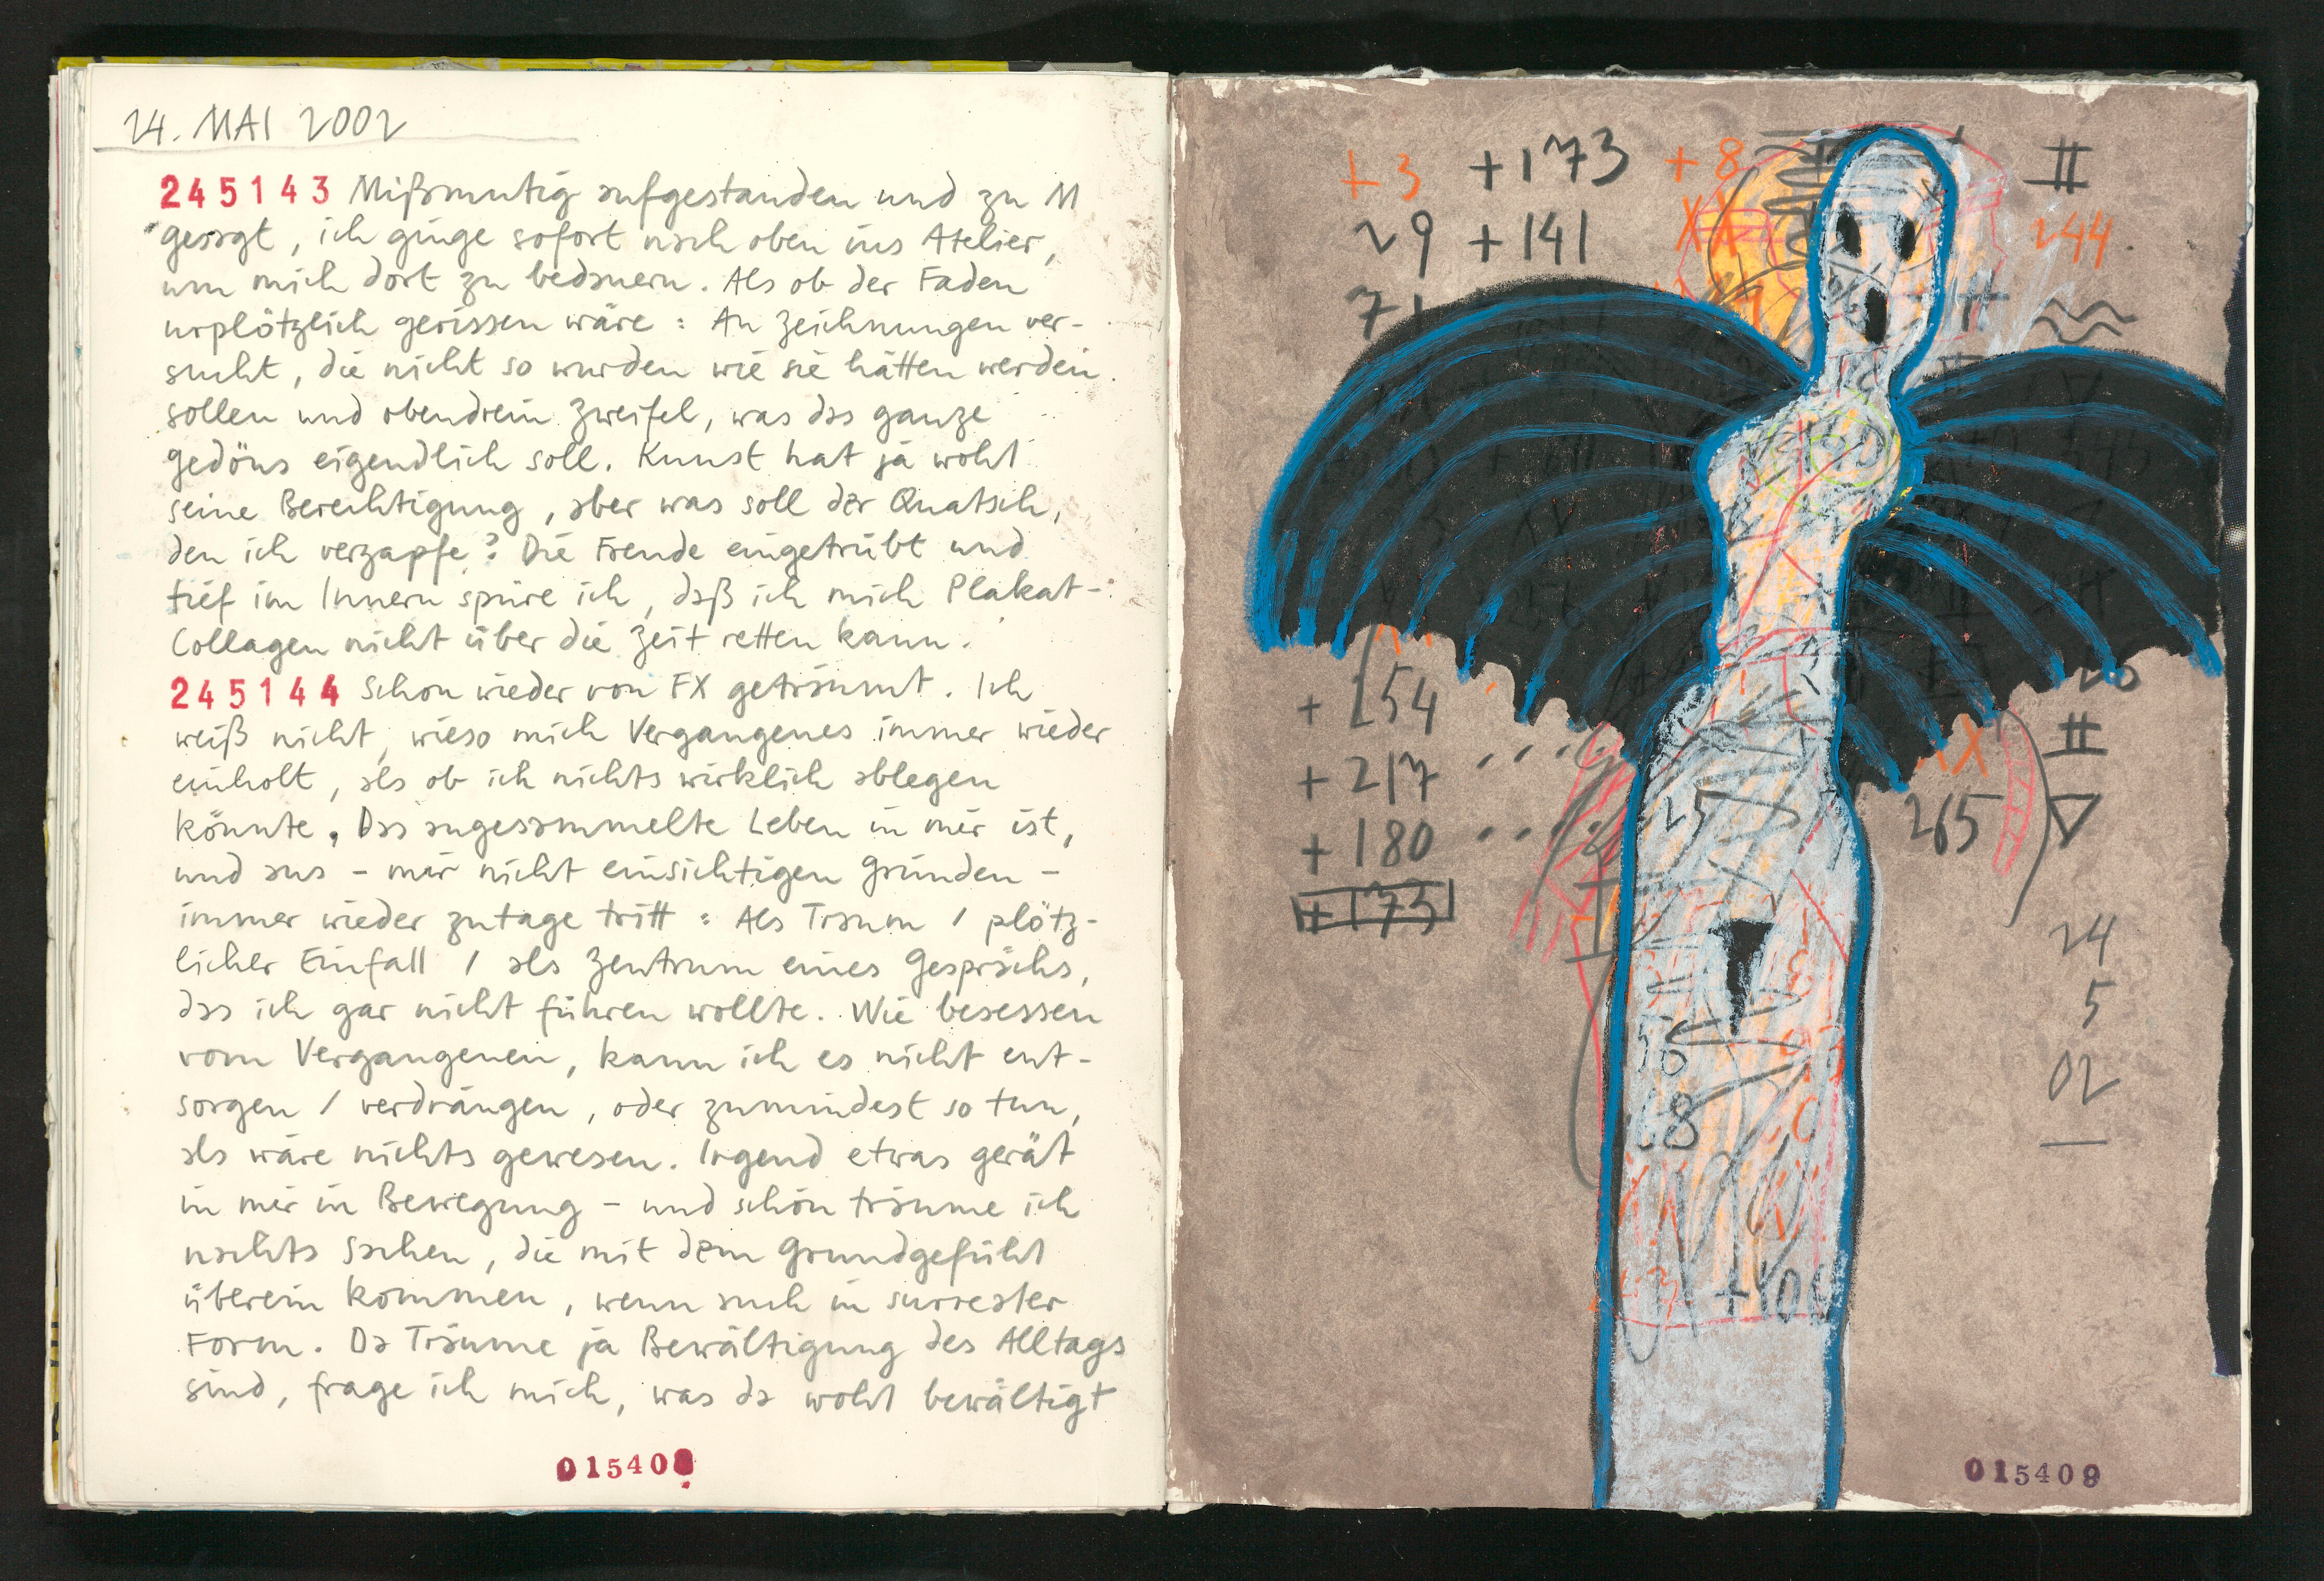 24. MAI 2002
245143 Mißmutig aufgestanden und zu M
gesagt, ich ginge sofort nach oben ins Atelier,
um mich dort zu bedauern. Als ob der Faden
urplötzlich gerissen wäre : An Zeichnungen ver-
sucht, die nicht so wurden wie sie hätten werden
sollen und obendrein Zweifel, was das ganze
gedöns eigendlich soll. Kunst hat ja wohl
seine Berechtigung, aber was soll der Quatsch,
den ich verzapfe? Die Freude eingetrübt und
tief im Innern spüre ich, daß ich mich Plakat-
Collagen nicht über die Zeit retten kann.
245144 Schon wieder von FX geträumt. Ich
weiß nicht, wieso mich Vergangenes immer wieder
einholt, als ob ich nichts wirklich ablegen
könnte. Das angesammelte Leben in mir ist,
und aus - mir nicht einsichtigen Gründen -
immer wieder zutage tritt : Als Traum / plötz-
licher Einfall / als Zentrum eines Gesprächs,
das ich gar nicht führen wollte. Wie besessen
vom Vergangenen, kann ich es nicht ent-
sorgen / verdrängen, oder zumindest so tun,
als wäre nichts gewesen. Irgend etwas gerät
in mir in Bewegung - und schon träume ich
nachts Sachen, die mit dem Grundgefühl
überein kommen, wenn auch in surrealer
Form. Da Träume ja Bewältigung des Alltags
sind, frage ich mich, was da wohl bewältigt
015408
+3 +173 +8
29 +141
244.
71
+ 254
+ 217
+ 180
+ 173
25
265
24
5
02
56
68
+100
015409